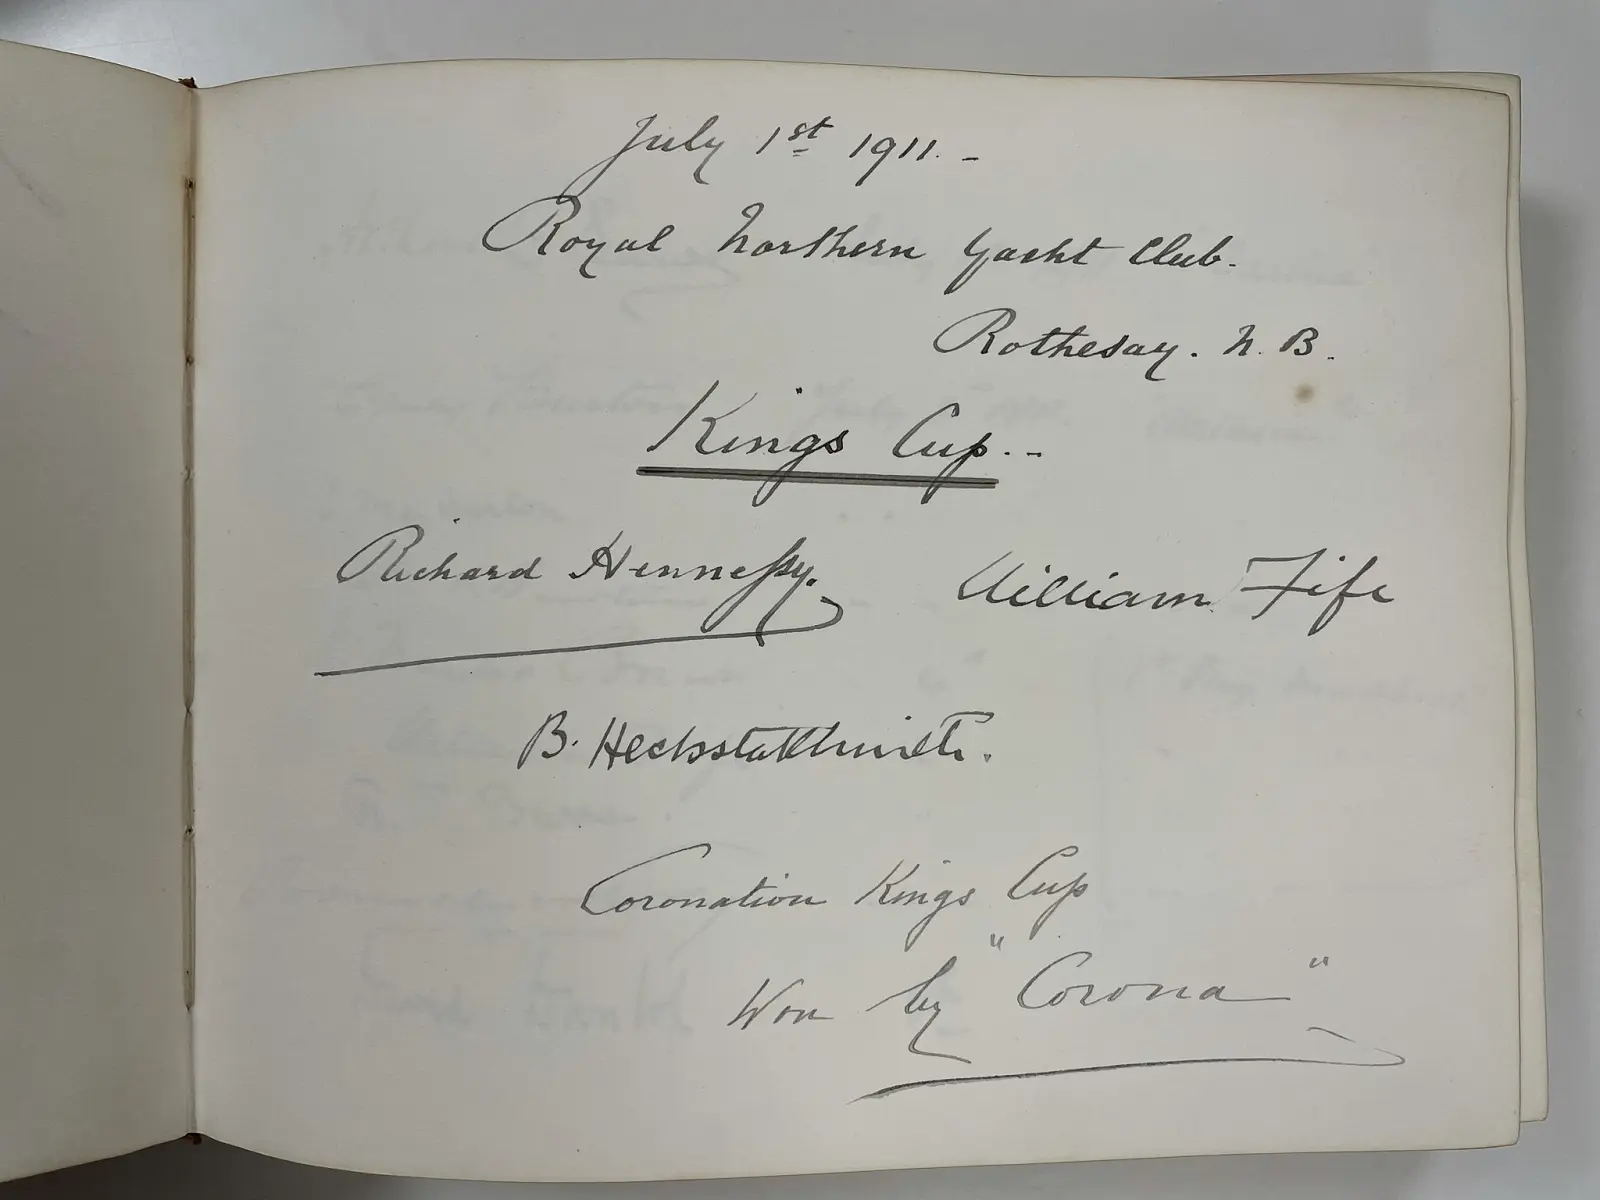 July 1st 1911. -
Royal Northern Yacht Club.
Rothesay. N. B.
Kings Cup. -
Richard Hennessy. William Fife
B. Heckstall Smith.
Coronation Kings Cup
Won by "Corona"